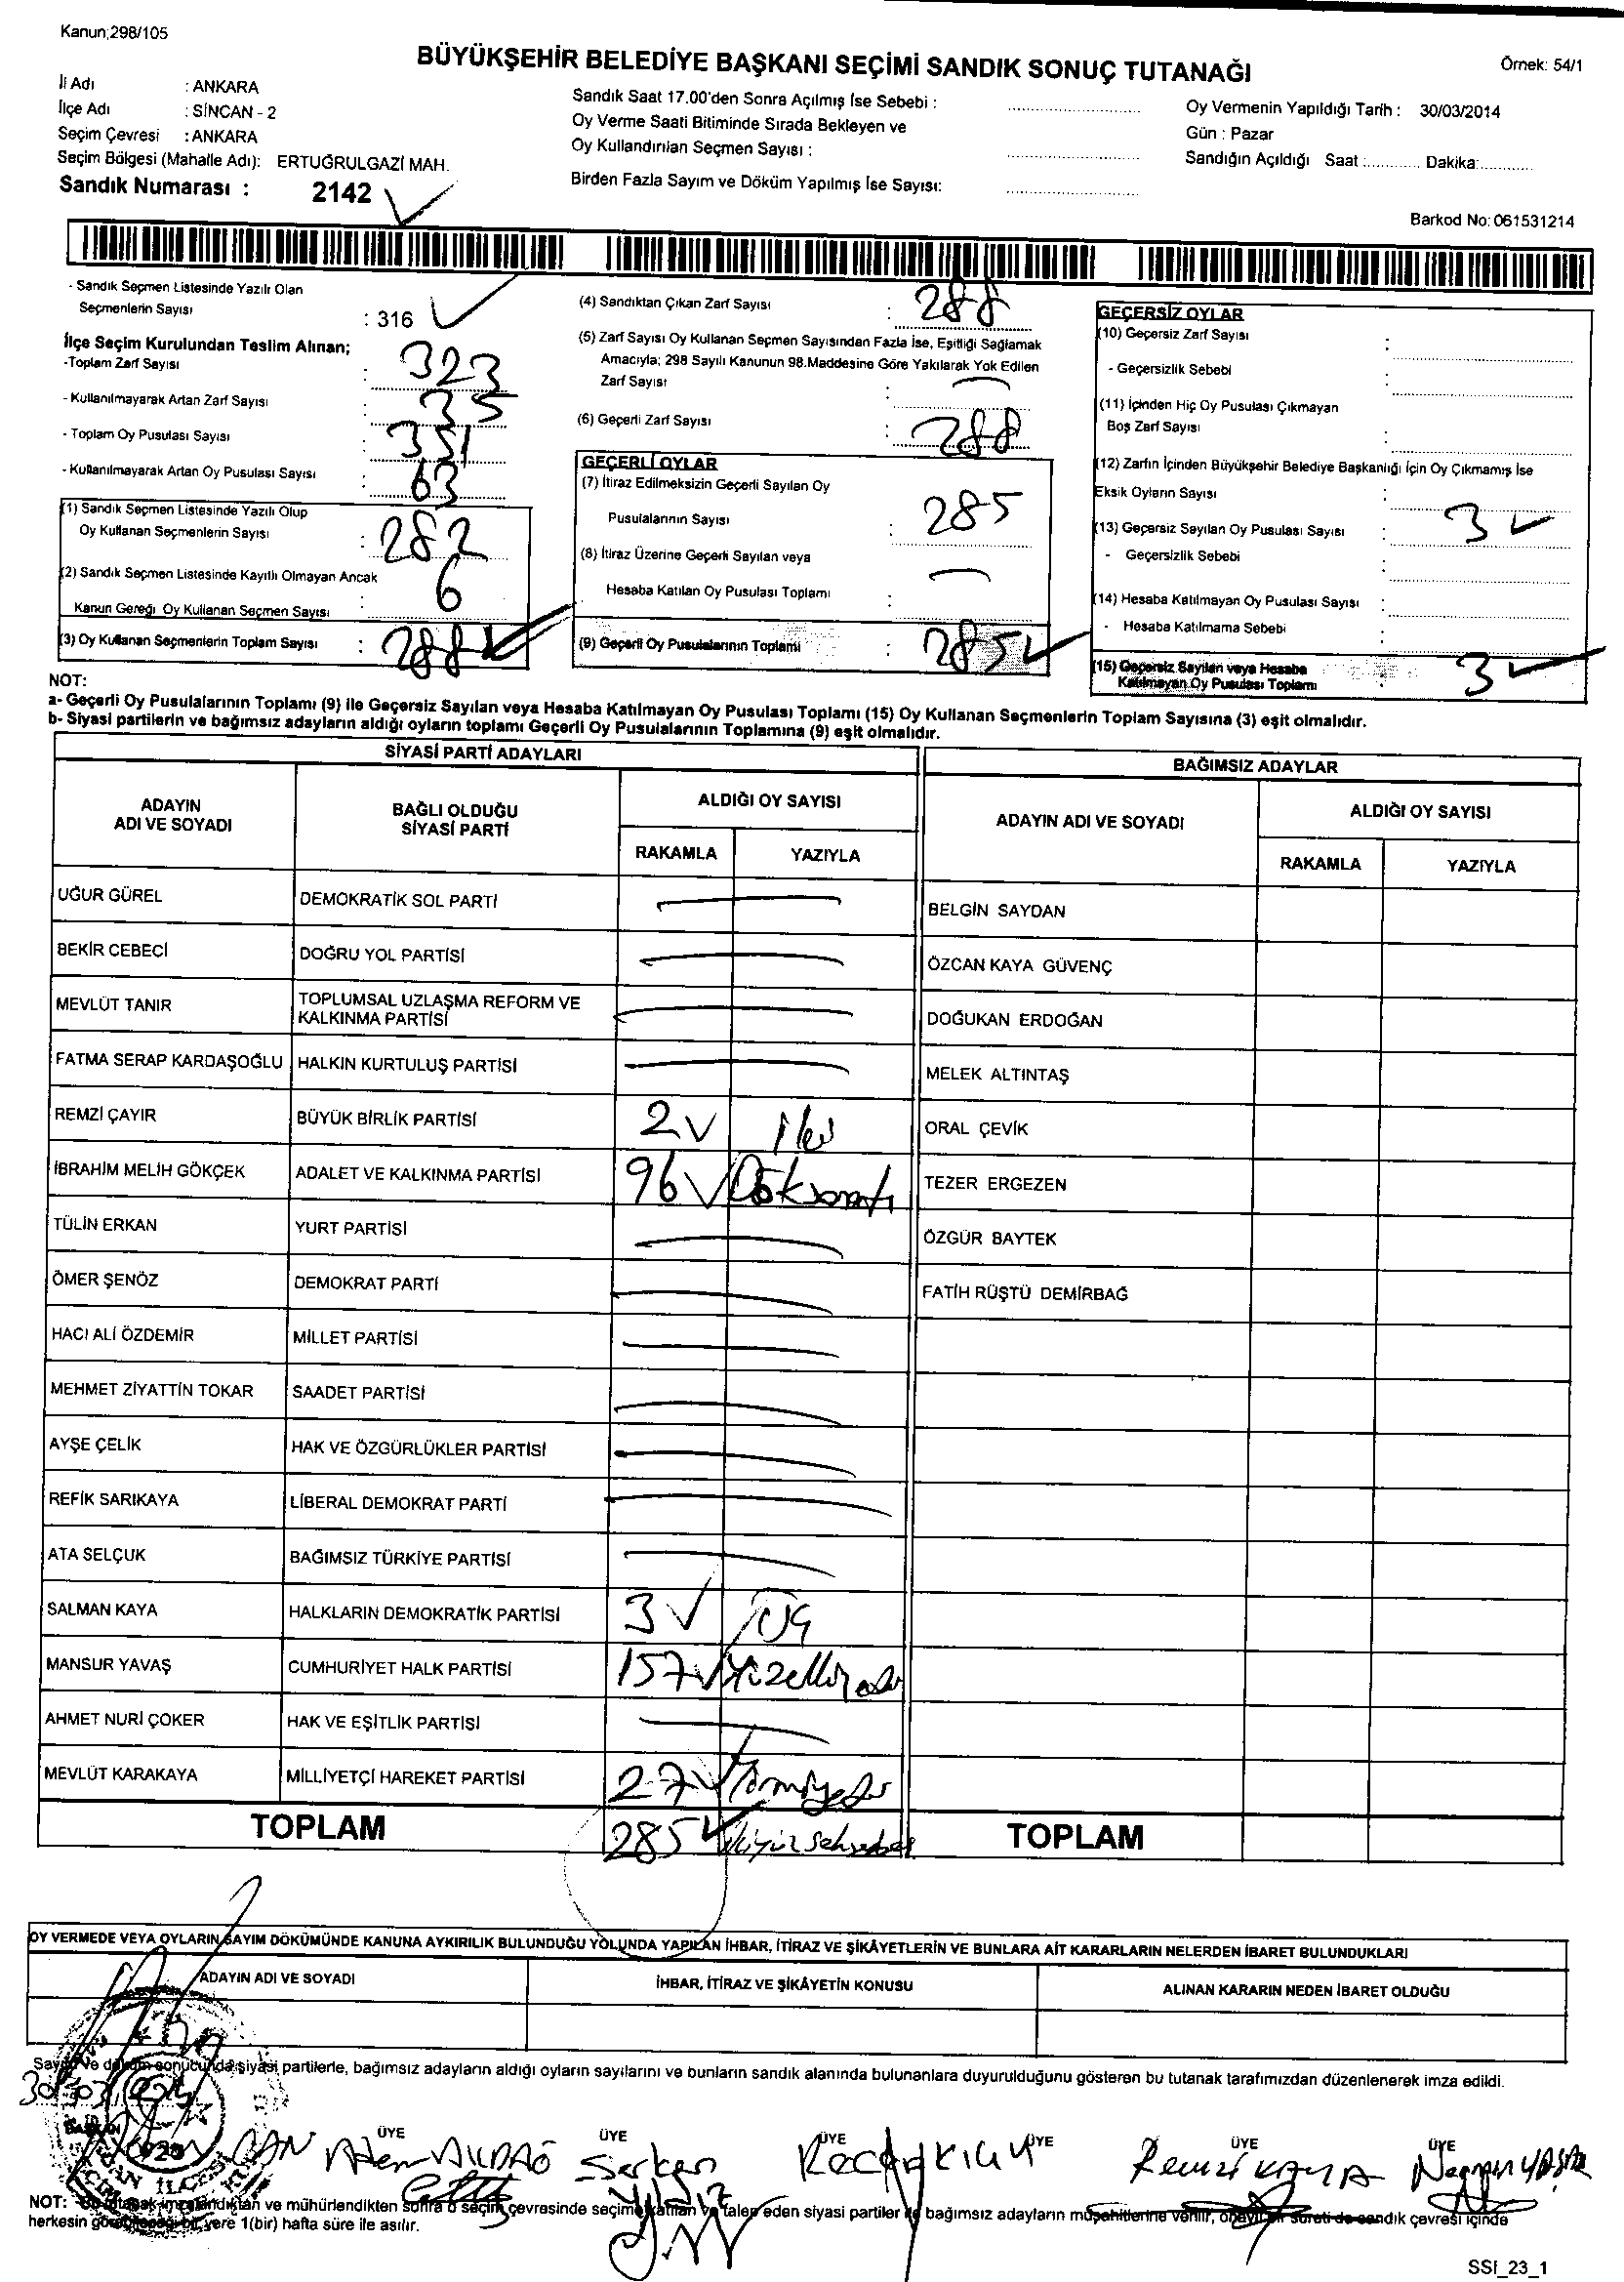 Kanun;298/105
BÜYÜKŞEHİR BELEDİYE BAŞKANI SEÇİMİ SANDIK SONUÇ TUTANAĞI
Örnek: 54/1
İl Adı : ANKARA
İlçe Adı : SİNCAN - 2
Seçim Çevresi : ANKARA
Seçim Bölgesi (Mahalle Adı): ERTUĞRULGAZİ MAH.
Sandık Numarası : 2142
Sandık Saat 17.00'den Sonra Açılmış İse Sebebi :
Oy Verme Saati Bitiminde Sırada Bekleyen ve
Oy Kullandırılan Seçmen Sayısı :
Birden Fazla Sayım ve Döküm Yapılmış İse Sayısı:
Oy Vermenin Yapıldığı Tarih : 30/03/2014
Gün : Pazar
Sandığın Açıldığı Saat :............ Dakika:............
Barkod No: 061531214
- Sandık Seçmen Listesinde Yazılı Olan
Seçmenlerin Sayısı : 316
İlçe Seçim Kurulundan Teslim Alınan;
-Toplam Zarf Sayısı : 323
- Kullanılmayarak Artan Zarf Sayısı : 35
- Toplam Oy Pusulası Sayısı : 351
- Kullanılmayarak Artan Oy Pusulası Sayısı : 63
(1) Sandık Seçmen Listesinde Yazılı Olup
Oy Kullanan Seçmenlerin Sayısı : 282
(2) Sandık Seçmen Listesinde Kayıtlı Olmayan Ancak
Kanun Gereği Oy Kullanan Seçmen Sayısı : 6
(3) Oy Kullanan Seçmenlerin Toplam Sayısı : 288
(4) Sandıktan Çıkan Zarf Sayısı : 288
(5) Zarf Sayısı Oy Kullanan Seçmen Sayısından Fazla İse, Eşitliği Sağlamak
Amacıyla; 298 Sayılı Kanunun 98.Maddesine Göre Yakılarak Yok Edilen
Zarf Sayısı : —
(6) Geçerli Zarf Sayısı : 288
GEÇERLİ OYLAR
(7) İtiraz Edilmeksizin Geçerli Sayılan Oy
Pusulalarının Sayısı : 285
(8) İtiraz Üzerine Geçerli Sayılan veya
Hesaba Katılan Oy Pusulası Toplamı : —
(9) Geçerli Oy Pusulalarının Toplamı : 285
GEÇERSİZ OYLAR
(10) Geçersiz Zarf Sayısı :
- Geçersizlik Sebebi :
(11) İçinden Hiç Oy Pusulası Çıkmayan
Boş Zarf Sayısı :
(12) Zarfın İçinden Büyükşehir Belediye Başkanlığı İçin Oy Çıkmamış İse
Eksik Oyların Sayısı :
(13) Geçersiz Sayılan Oy Pusulası Sayısı : 3
- Geçersizlik Sebebi :
(14) Hesaba Katılmayan Oy Pusulası Sayısı :
- Hesaba Katılmama Sebebi :
(15) Geçersiz Sayılan veya Hesaba
Katılmayan Oy Pusulası Toplamı : 3
NOT:
a- Geçerli Oy Pusulalarının Toplamı (9) ile Geçersiz Sayılan veya Hesaba Katılmayan Oy Pusulası Toplamı (15) Oy Kullanan Seçmenlerin Toplam Sayısına (3) eşit olmalıdır.
b- Siyasi partilerin ve bağımsız adayların aldığı oyların toplamı Geçerli Oy Pusulalarının Toplamına (9) eşit olmalıdır.
SİYASİ PARTİ ADAYLARI
BAĞIMSIZ ADAYLAR
ADAYIN ADI VE SOYADI
BAĞLI OLDUĞU SİYASİ PARTİ
ALDIĞI OY SAYISI
RAKAMLA YAZIYLA
ADAYIN ADI VE SOYADI
ALDIĞI OY SAYISI
RAKAMLA YAZIYLA
UĞUR GÜREL DEMOKRATİK SOL PARTİ — BELGİN SAYDAN
BEKİR CEBECİ DOĞRU YOL PARTİSİ — ÖZCAN KAYA GÜVENÇ
MEVLÜT TANIR TOPLUMSAL UZLAŞMA REFORM VE KALKINMA PARTİSİ — DOĞUKAN ERDOĞAN
FATMA SERAP KARDAŞOĞLU HALKIN KURTULUŞ PARTİSİ — MELEK ALTINTAŞ
REMZİ ÇAYIR BÜYÜK BİRLİK PARTİSİ 2 iki ORAL ÇEVİK
İBRAHİM MELİH GÖKÇEK ADALET VE KALKINMA PARTİSİ 96 Doksanaltı TEZER ERGEZEN
TÜLİN ERKAN YURT PARTİSİ — ÖZGÜR BAYTEK
ÖMER ŞENÖZ DEMOKRAT PARTİ — FATİH RÜŞTÜ DEMİRBAĞ
HACI ALİ ÖZDEMİR MİLLET PARTİSİ —
MEHMET ZİYATTİN TOKAR SAADET PARTİSİ —
AYŞE ÇELİK HAK VE ÖZGÜRLÜKLER PARTİSİ —
REFİK SARIKAYA LİBERAL DEMOKRAT PARTİ —
ATA SELÇUK BAĞIMSIZ TÜRKİYE PARTİSİ —
SALMAN KAYA HALKLARIN DEMOKRATİK PARTİSİ 3 Üç
MANSUR YAVAŞ CUMHURİYET HALK PARTİSİ 157 Yüzelliyedi
AHMET NURİ ÇOKER HAK VE EŞİTLİK PARTİSİ —
MEVLÜT KARAKAYA MİLLİYETÇİ HAREKET PARTİSİ 27 Yirmiyedi
TOPLAM 285 ikiyüzseksenbeş TOPLAM
OY VERMEDE VEYA OYLARIN SAYIM DÖKÜMÜNDE KANUNA AYKIRILIK BULUNDUĞU YOLUNDA YAPILAN İHBAR, İTİRAZ VE ŞİKÂYETLERİN VE BUNLARA AİT KARARLARIN NELERDEN İBARET BULUNDUKLARI
ADAYIN ADI VE SOYADI İHBAR, İTİRAZ VE ŞİKÂYETİN KONUSU ALINAN KARARIN NEDEN İBARET OLDUĞU
Sayım ve döküm sonucunda siyasi partilerle, bağımsız adayların aldığı oyların sayılarını ve bunların sandık alanında bulunanlara duyurulduğunu gösteren bu tutanak tarafımızdan düzenlenerek imza edildi.
BAŞKAN ÜYE ÜYE ÜYE ÜYE ÜYE ÜYE
CAN Serkan Recep KILIÇ Remzi KAYA
NOT: Bu tutanak imzalandıktan ve mühürlendikten sonra o seçim çevresinde seçime katılan ve talep eden siyasi partiler ile bağımsız adayların müşahitlerine verilir, onaylı bir sureti de sandık çevresi içinde
herkesin görebileceği bir yere 1(bir) hafta süre ile asılır.
SSI_23_1